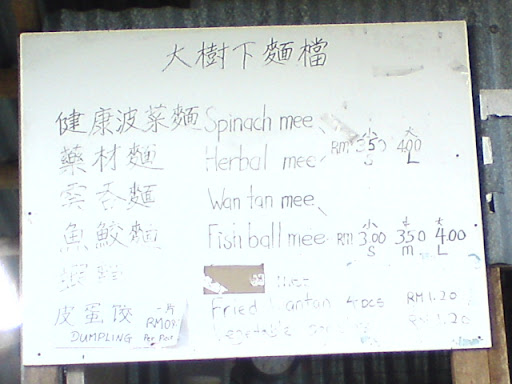 大樹下麵檔
健康波菜麵 Spinach mee
藥材麵 Herbal mee RM 小 3.50 S 大 4.00 L
雲吞麵 Wan tan mee
魚鮫麵 Fish ball mee RM 小 3.00 S 中 3.50 M 大 4.00 L
mee
皮蛋餃 一片 Fried Wantan 4pcs RM 1.20
DUMPLING Per Pcs Vegetable RM 1.20